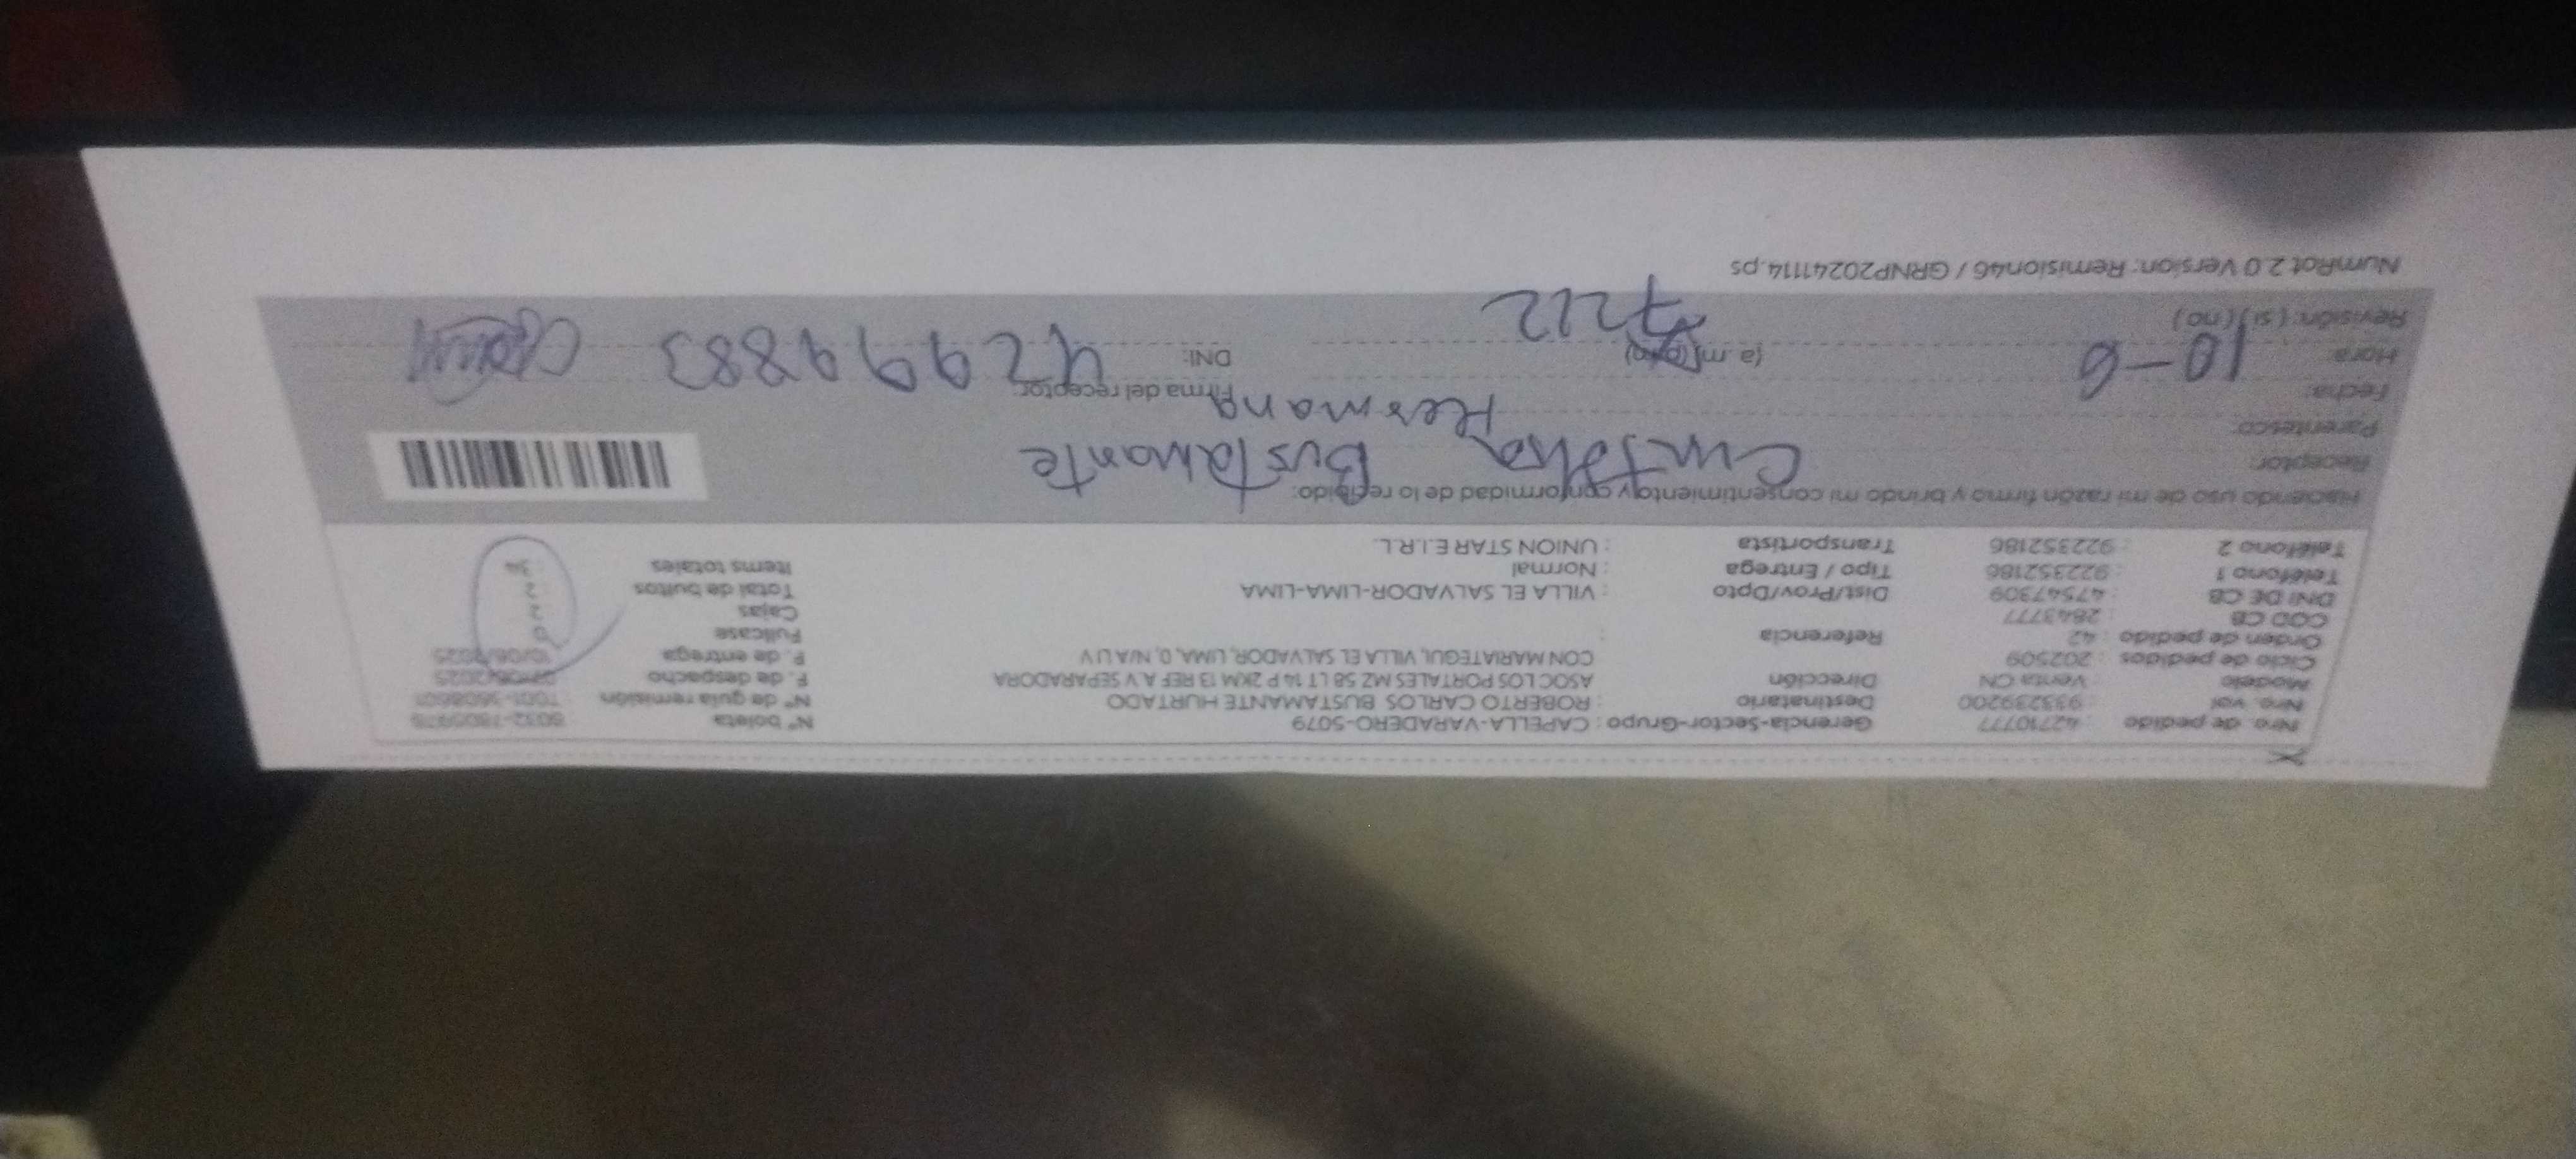 Nro. de pedido : 42710777 Gerencia-Sector-Grupo : CAPELLA-VARADERO-5079 N° boleta
Nro. vol : 933239200 Destinatario : ROBERTO CARLOS BUSTAMANTE HURTADO N° de guía remisión
Modelo : Venta CN Dirección ASOC LOS PORTALES MZ 58 LT 14 P 2KM 13 REF A V SEPARADORA F. de despacho
Ciclo de pedidos : 202509 CON MARIATEGUI, VILLA EL SALVADOR, LIMA, 0, N/A U V F. de entrega 10/06/2025
Orden de pedido : 42 Referencia : Fullcase 0
COD CB : 2843777 Cajas : 2
DNI DE CB : 47547309 Dist/Prov/Dpto : VILLA EL SALVADOR-LIMA-LIMA Total de bultos : 2
Teléfono 1 : 922352186 Tipo / Entrega : Normal Items totales : 34
Teléfono 2 : 922352186 Transportista : UNION STAR E.I.R.L.
Haciendo uso de mi razón firmo y brindo mi consentimiento y conformidad de lo recibido:
Receptor: Bustamante
Parentesco: Hermana
Fecha: 10-6 Firma del receptor:
Hora: (a. m) (p. m) 7212 DNI: 42999883
Revisión: ( si ) ( no )
NumRot 2.0 Version: Remision46 / GRNP20241114.ps